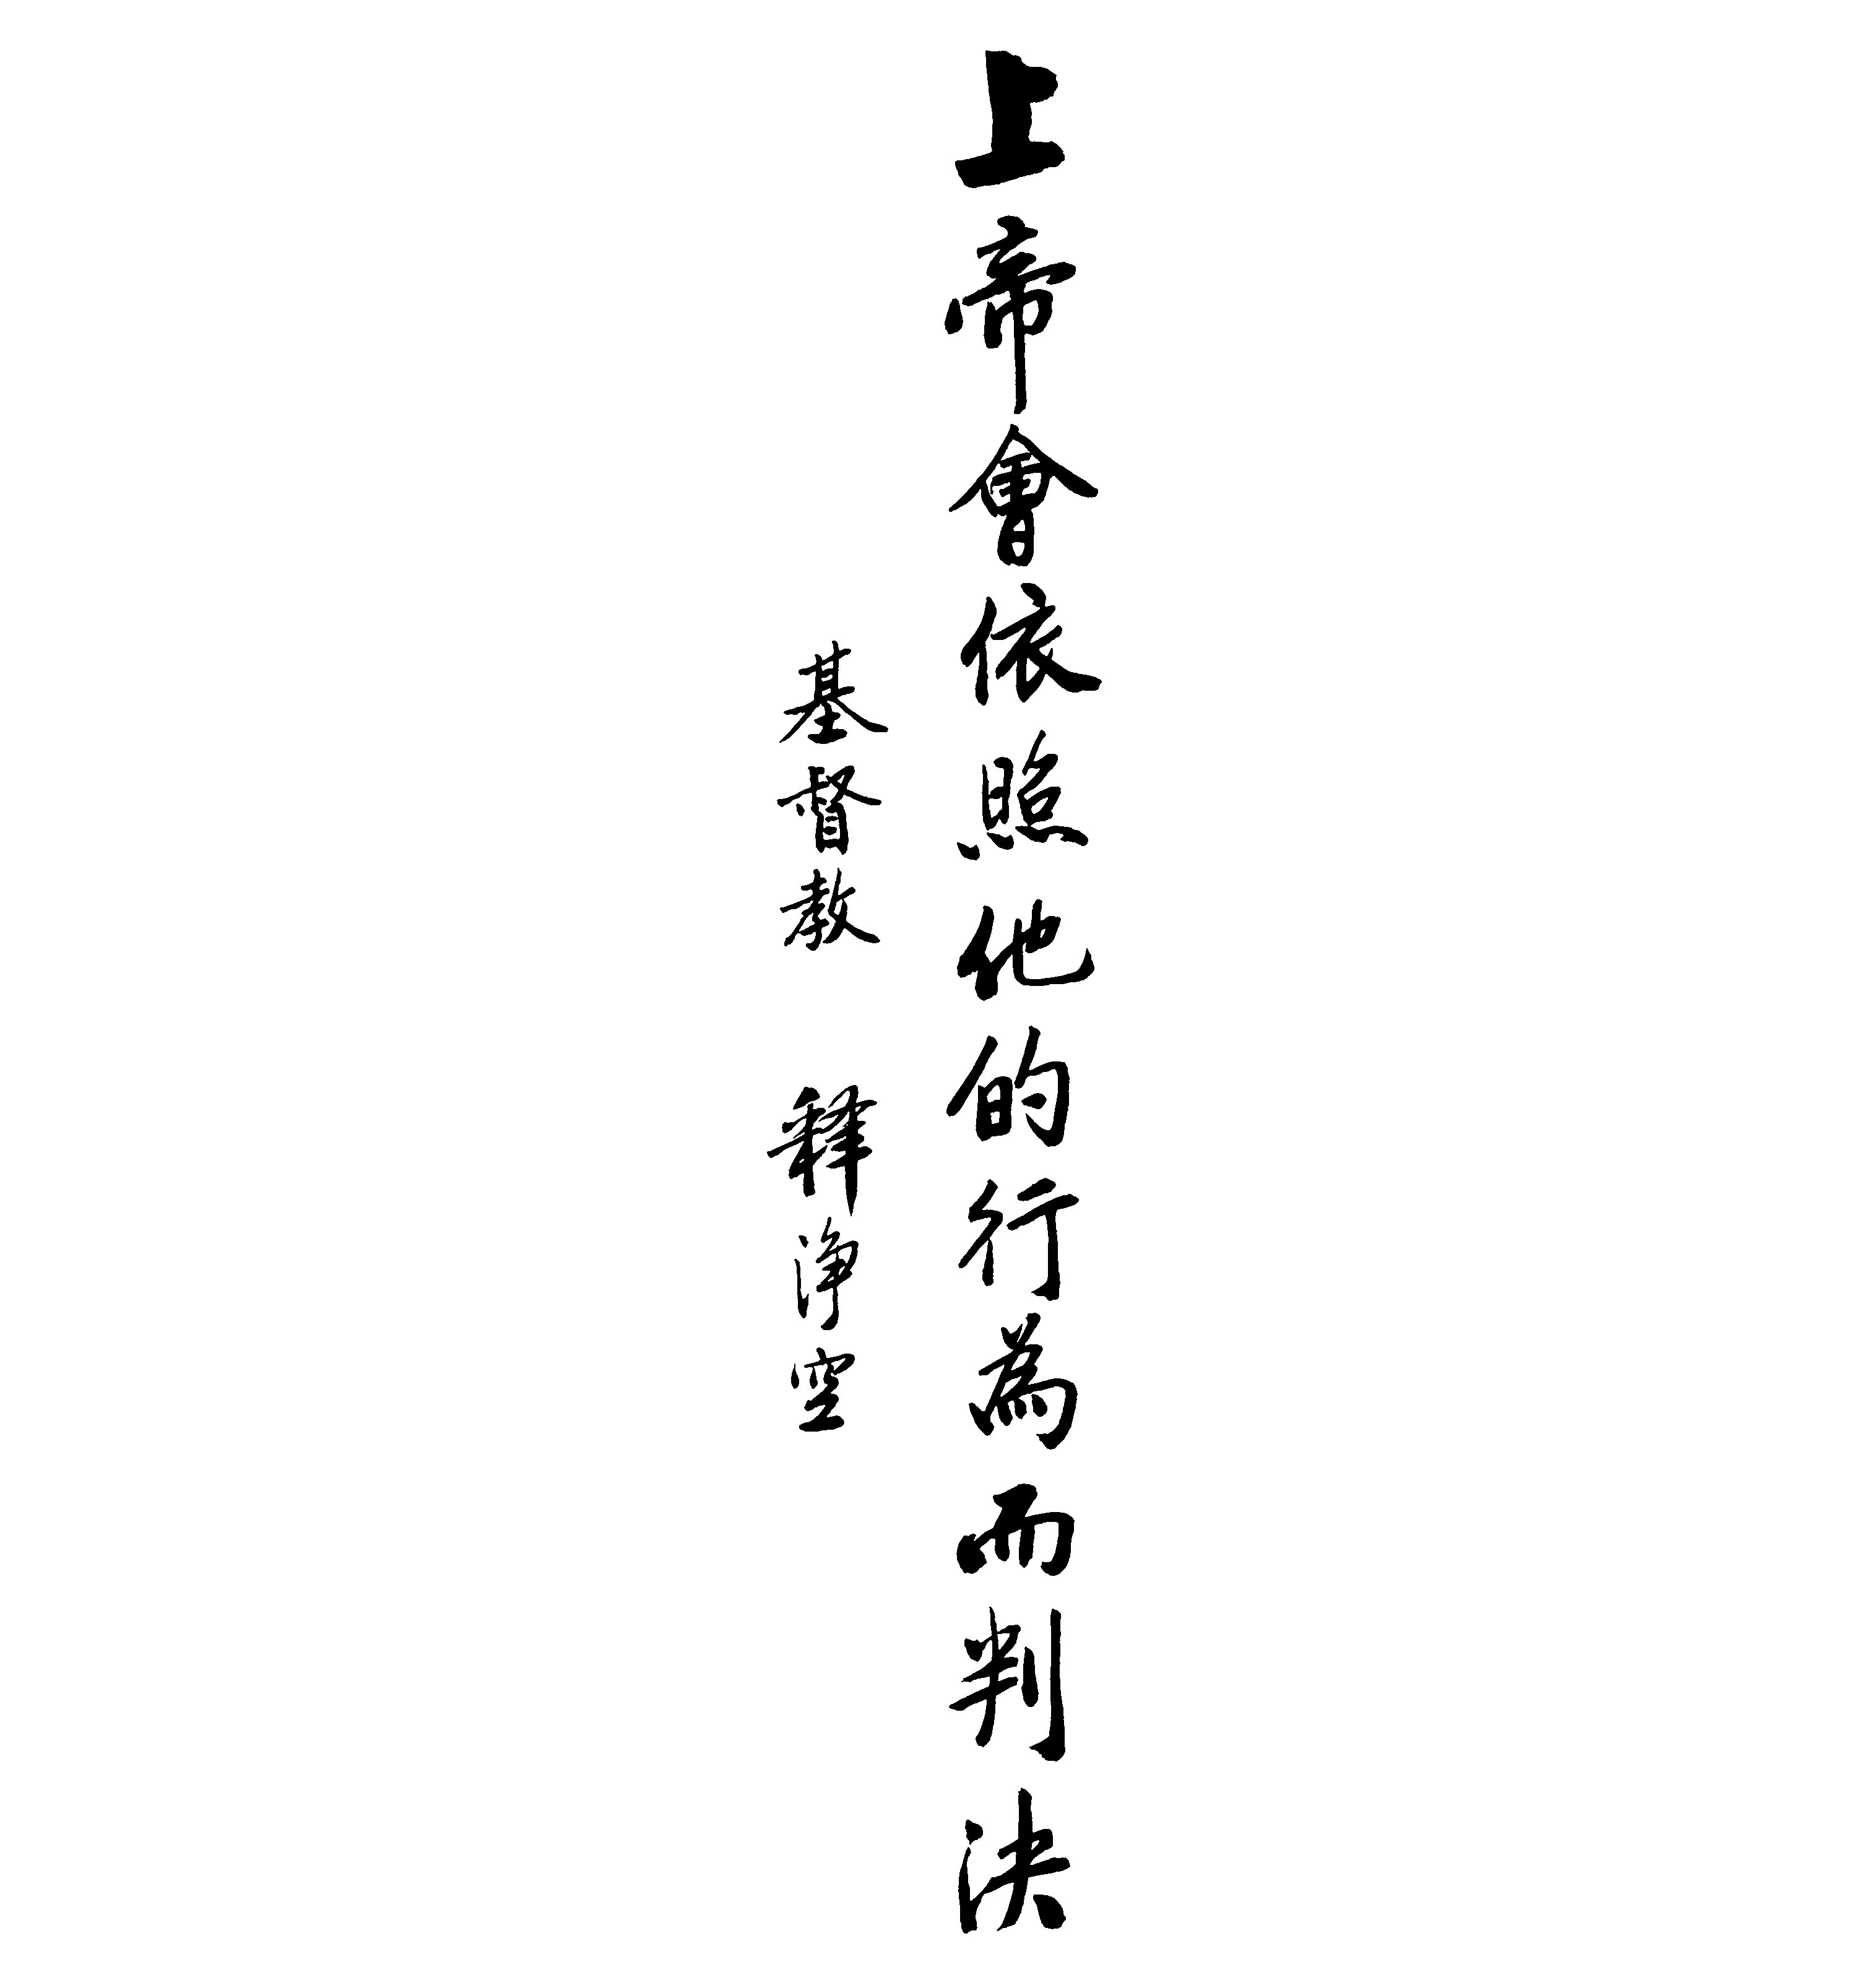 上帝會依照他的行為而判決
基督教 釋淨空